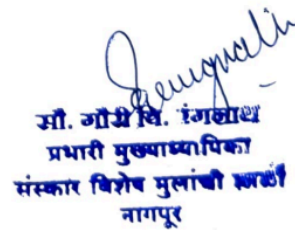 सौ. गौरी वि. रंगनाथ
प्रभारी मुख्याध्यापिका
संस्कार विशेष मुलांची
नागपूर